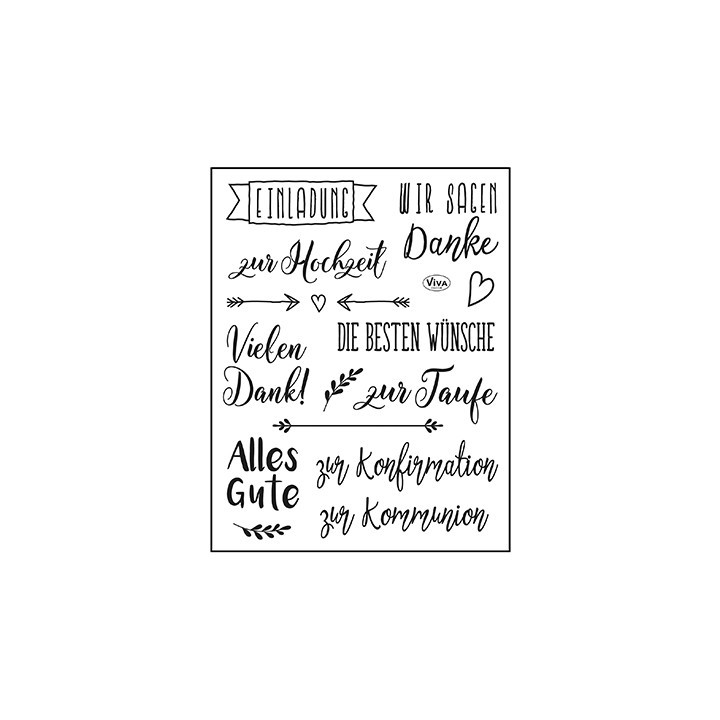 EINLADUNG
WIR SAGEN
Danke
zur Hochzeit
VIVA
Vielen
Dank!
DIE BESTEN WÜNSCHE
zur Taufe
Alles
Gute
zur Konfirmation
zur Kommunion